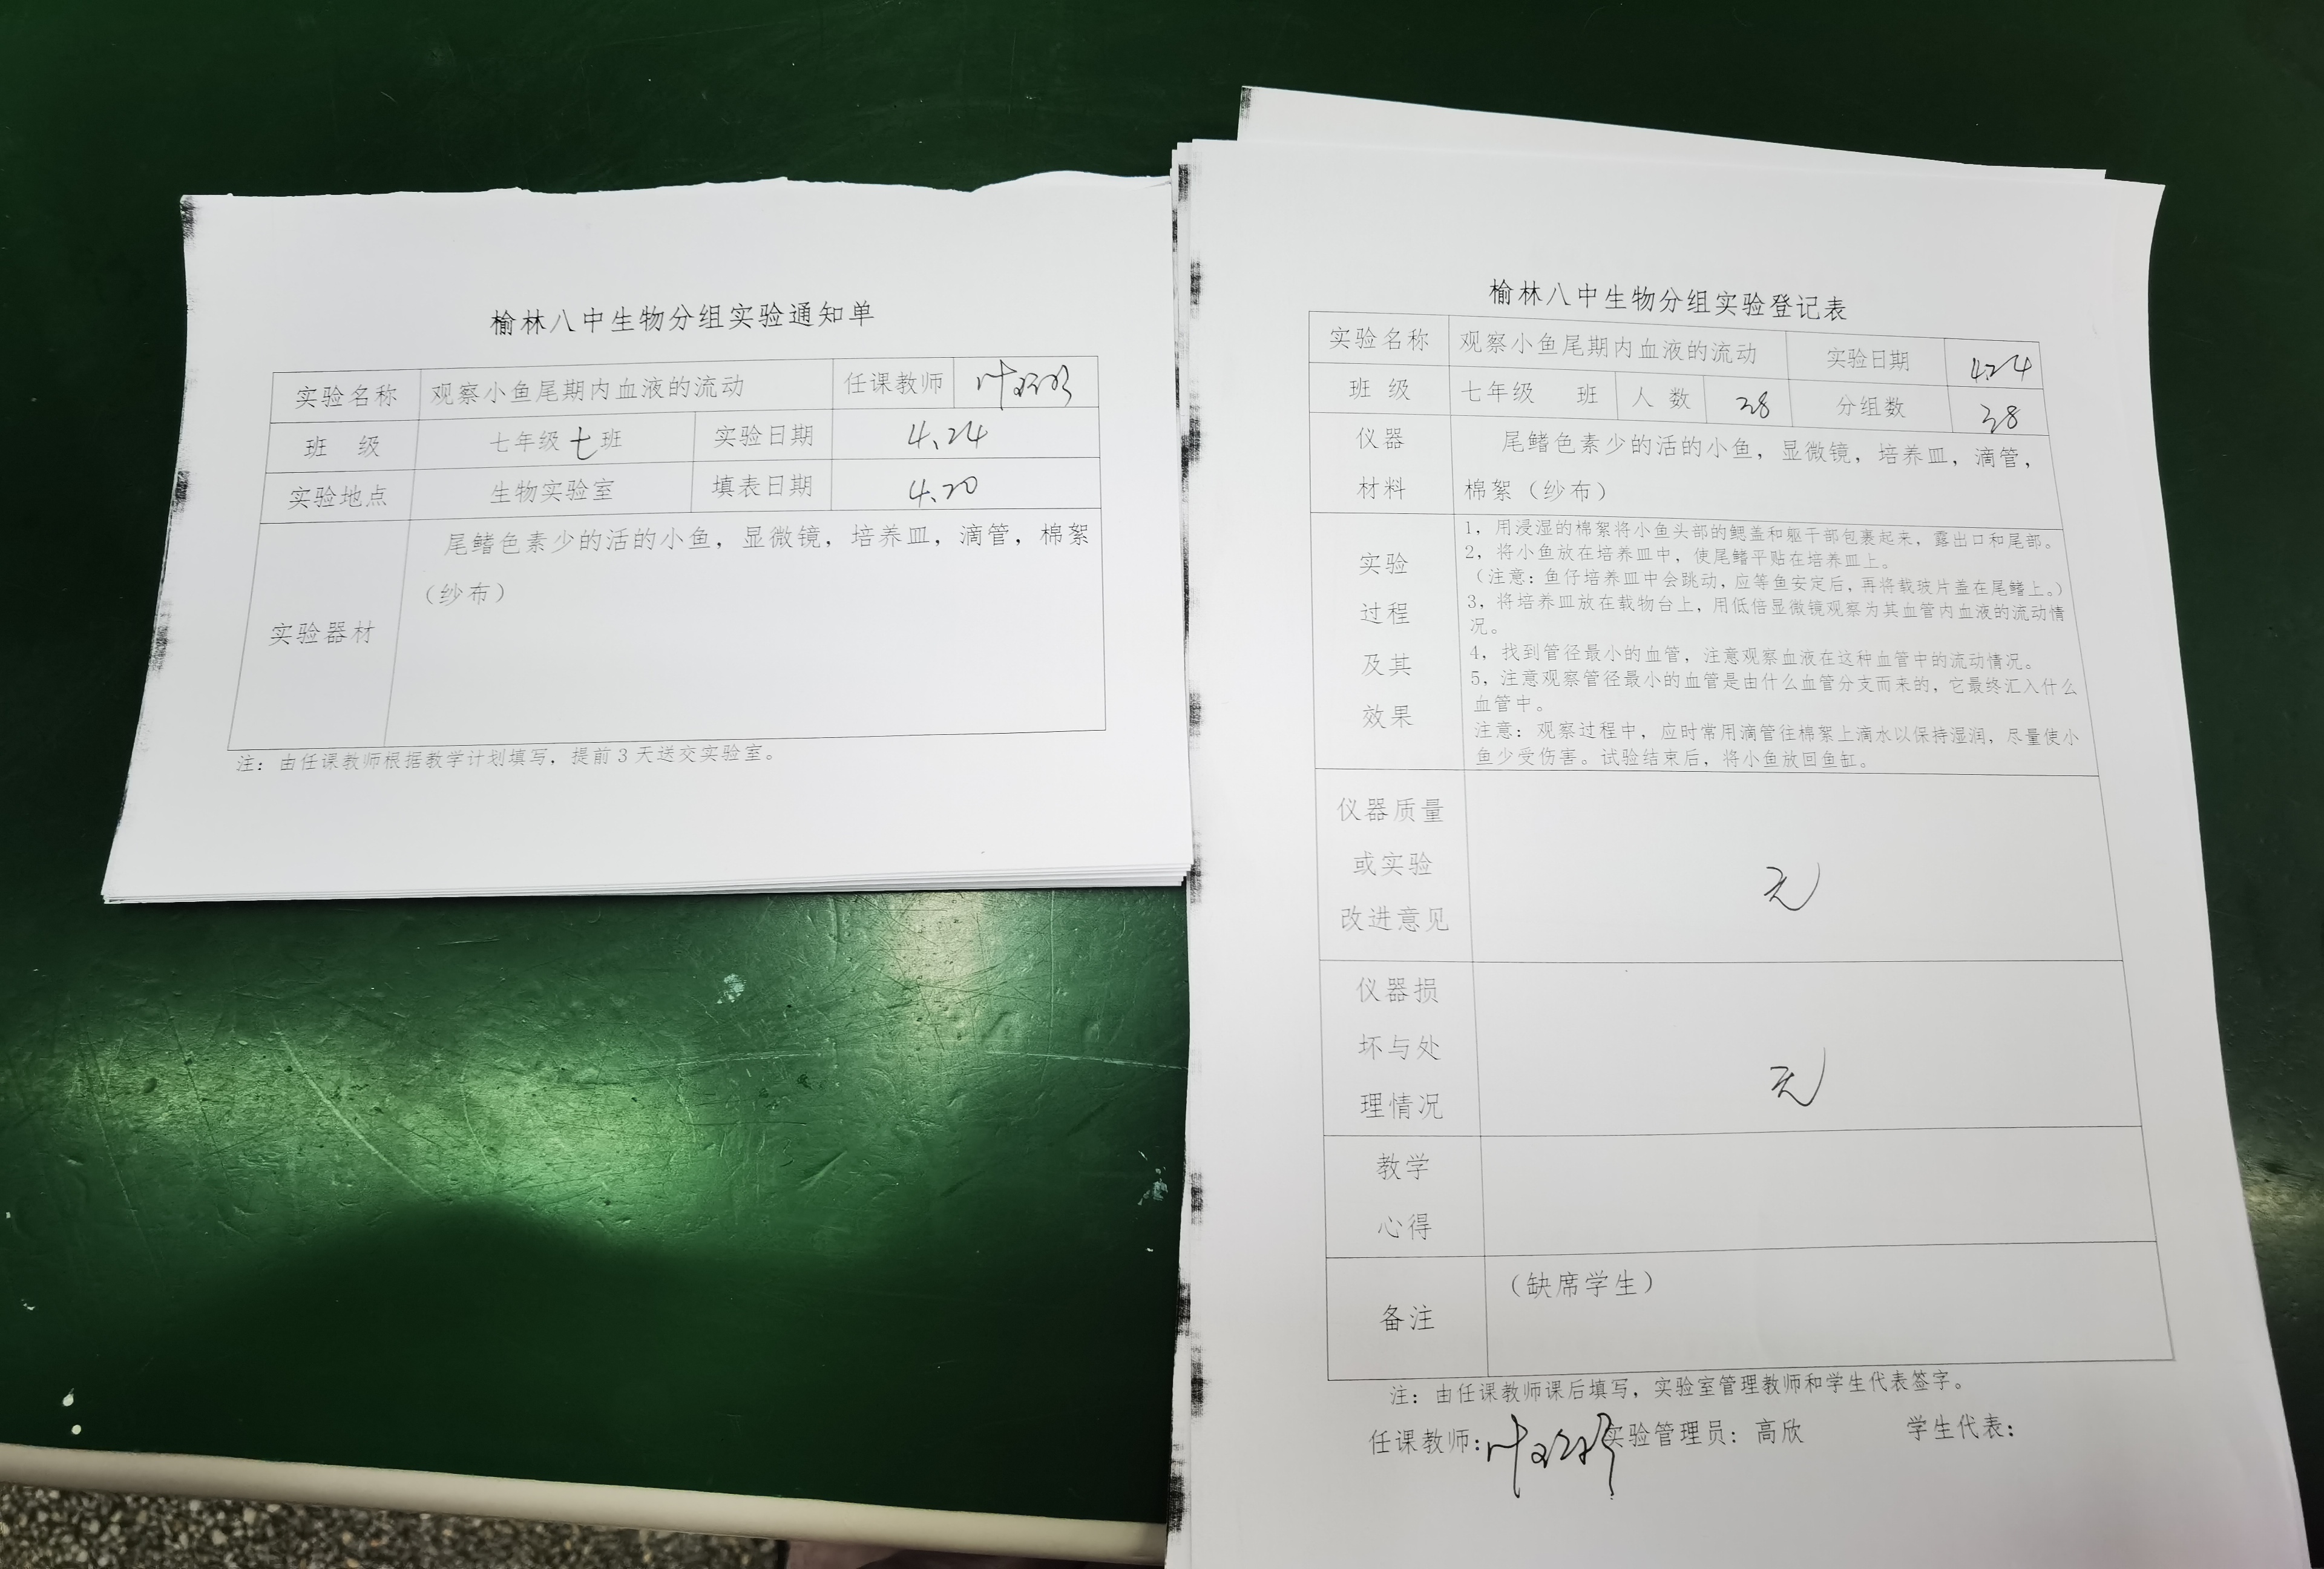 榆林八中生物分组实验通知单
实验名称 观察小鱼尾期内血液的流动 任课教师
班 级 七年级七班 实验日期 4.24
实验地点 生物实验室 填表日期 4.20
实验器材
尾鳍色素少的活的小鱼，显微镜，培养皿，滴管，棉絮
（纱布）
注：由任课教师根据教学计划填写，提前3天送交实验室。
榆林八中生物分组实验登记表
实验名称 观察小鱼尾期内血液的流动 实验日期 4.24
班 级 七年级 班 人 数 38 分组数 38
仪器
材料
尾鳍色素少的活的小鱼，显微镜，培养皿，滴管，
棉絮（纱布）
实验
过程
及其
效果
1，用浸湿的棉絮将小鱼头部的鳃盖和躯干部包裹起来，露出口和尾部。
2，将小鱼放在培养皿中，使尾鳍平贴在培养皿上。
（注意：鱼仔培养皿中会跳动，应等鱼安定后，再将载玻片盖在尾鳍上。）
3，将培养皿放在载物台上，用低倍显微镜观察为其血管内血液的流动情
况。
4，找到管径最小的血管，注意观察血液在这种血管中的流动情况。
5，注意观察管径最小的血管是由什么血管分支而来的，它最终汇入什么
血管中。
注意：观察过程中，应时常用滴管往棉絮上滴水以保持湿润，尽量使小
鱼少受伤害。试验结束后，将小鱼放回鱼缸。
仪器质量
或实验
改进意见
无
仪器损
坏与处
理情况
无
教学
心得
备注
（缺席学生）
注：由任课教师课后填写，实验室管理教师和学生代表签字。
任课教师： 实验管理员：高欣 学生代表：